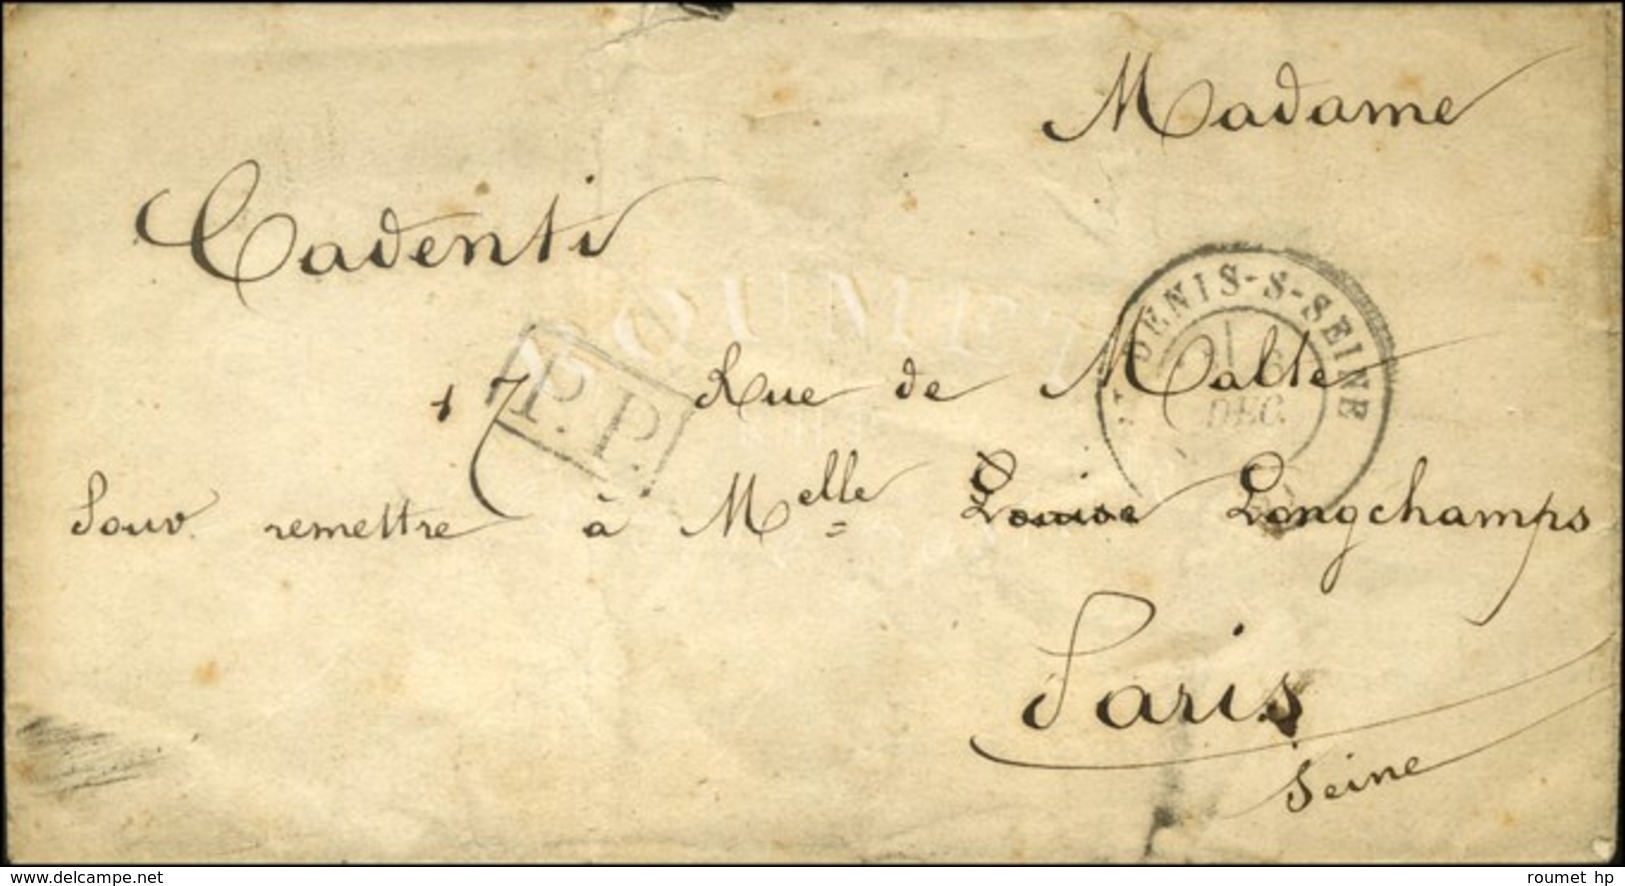 Madame
Cadenti
17 Rue de Malte
Pour remettre à Melle Louise Longchamps
Paris
Seine
P.P.
DENIS-S-SEINE
6
DEC.
ROUMET
www.delcampe.net
roumet hp